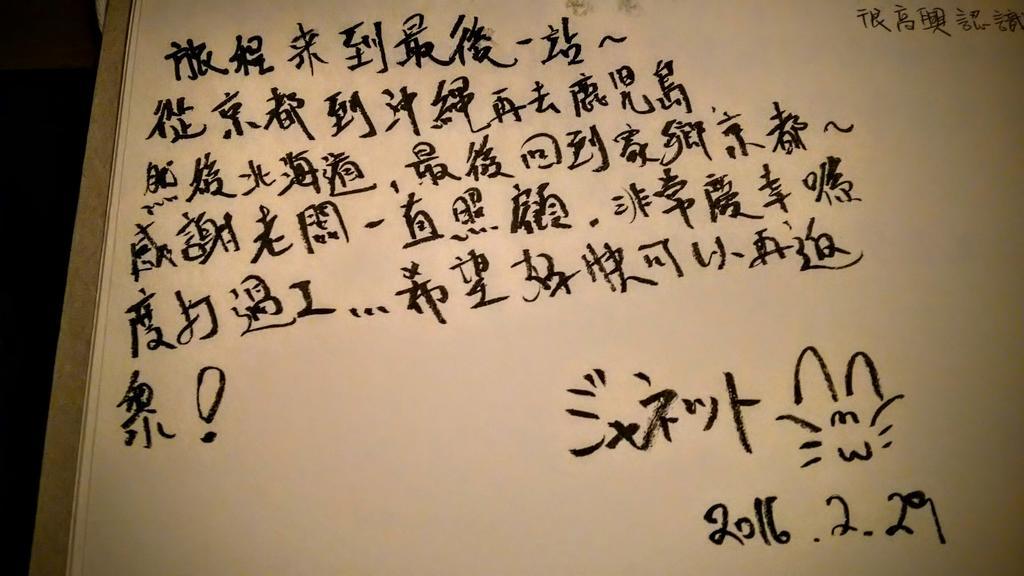 很高興認識
旅程來到最後一站~
從京都到沖縄再去鹿児島
然後北海道,最後回到家鄉京都~
感謝老闆一直照顧,非常慶幸喺
度打過工...希望好快可以再返
嚟!
ジャネット
2016.2.29